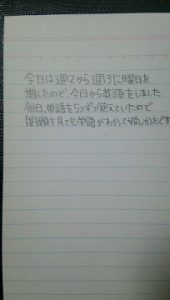 今日は週2から週3に曜日を
増したので、今日から英語をしました
毎日、単語を5つずつ覚えていたので
問題を見ても単語がわかって嬉しかたです